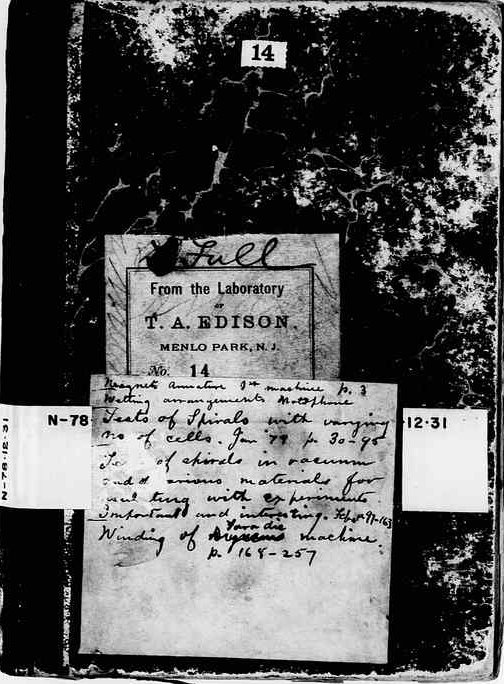 14
Full
From the Laboratory
OF
T. A. EDISON,
MENLO PARK, N. J.
No. 14
Magnets Armature 1st machine p. 3
Wetting arrangements Motophone
N-78-12-31
N-78 12·31
Tests of Spirals with varying
no of cells. Jan 79 p 30-95
of spirals in vacuum
and various materials for
with experiments.
Important and interesting. 97-163
Winding of Faradic machine.
p. 168-257